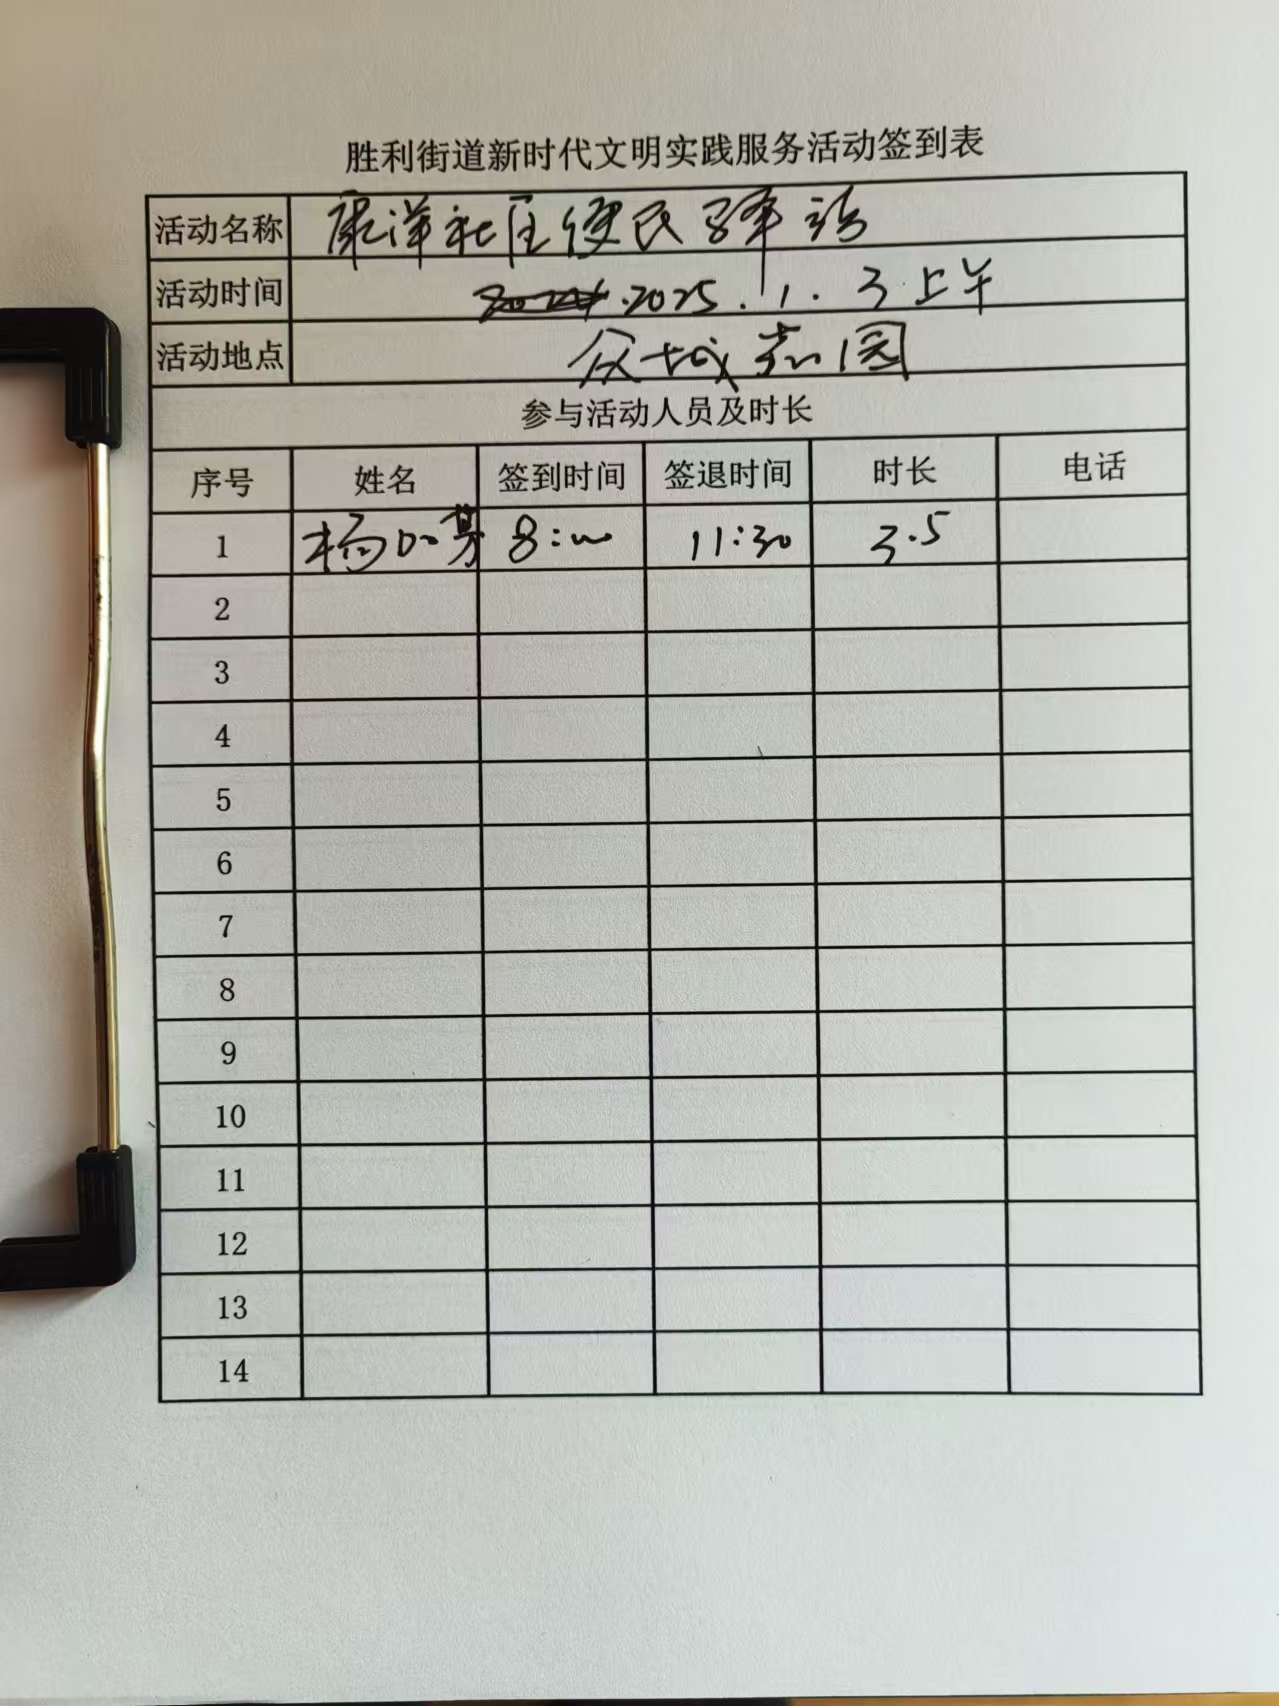 胜利街道新时代文明实践服务活动签到表
活动名称 康洋社区便民驿站
活动时间 2025.1.3上午
活动地点 众城嘉园
参与活动人员及时长
序号 姓名 签到时间 签退时间 时长 电话
1 杨 8:00 11:30 3.5
2
3
4
5
6
7
8
9
10
11
12
13
14